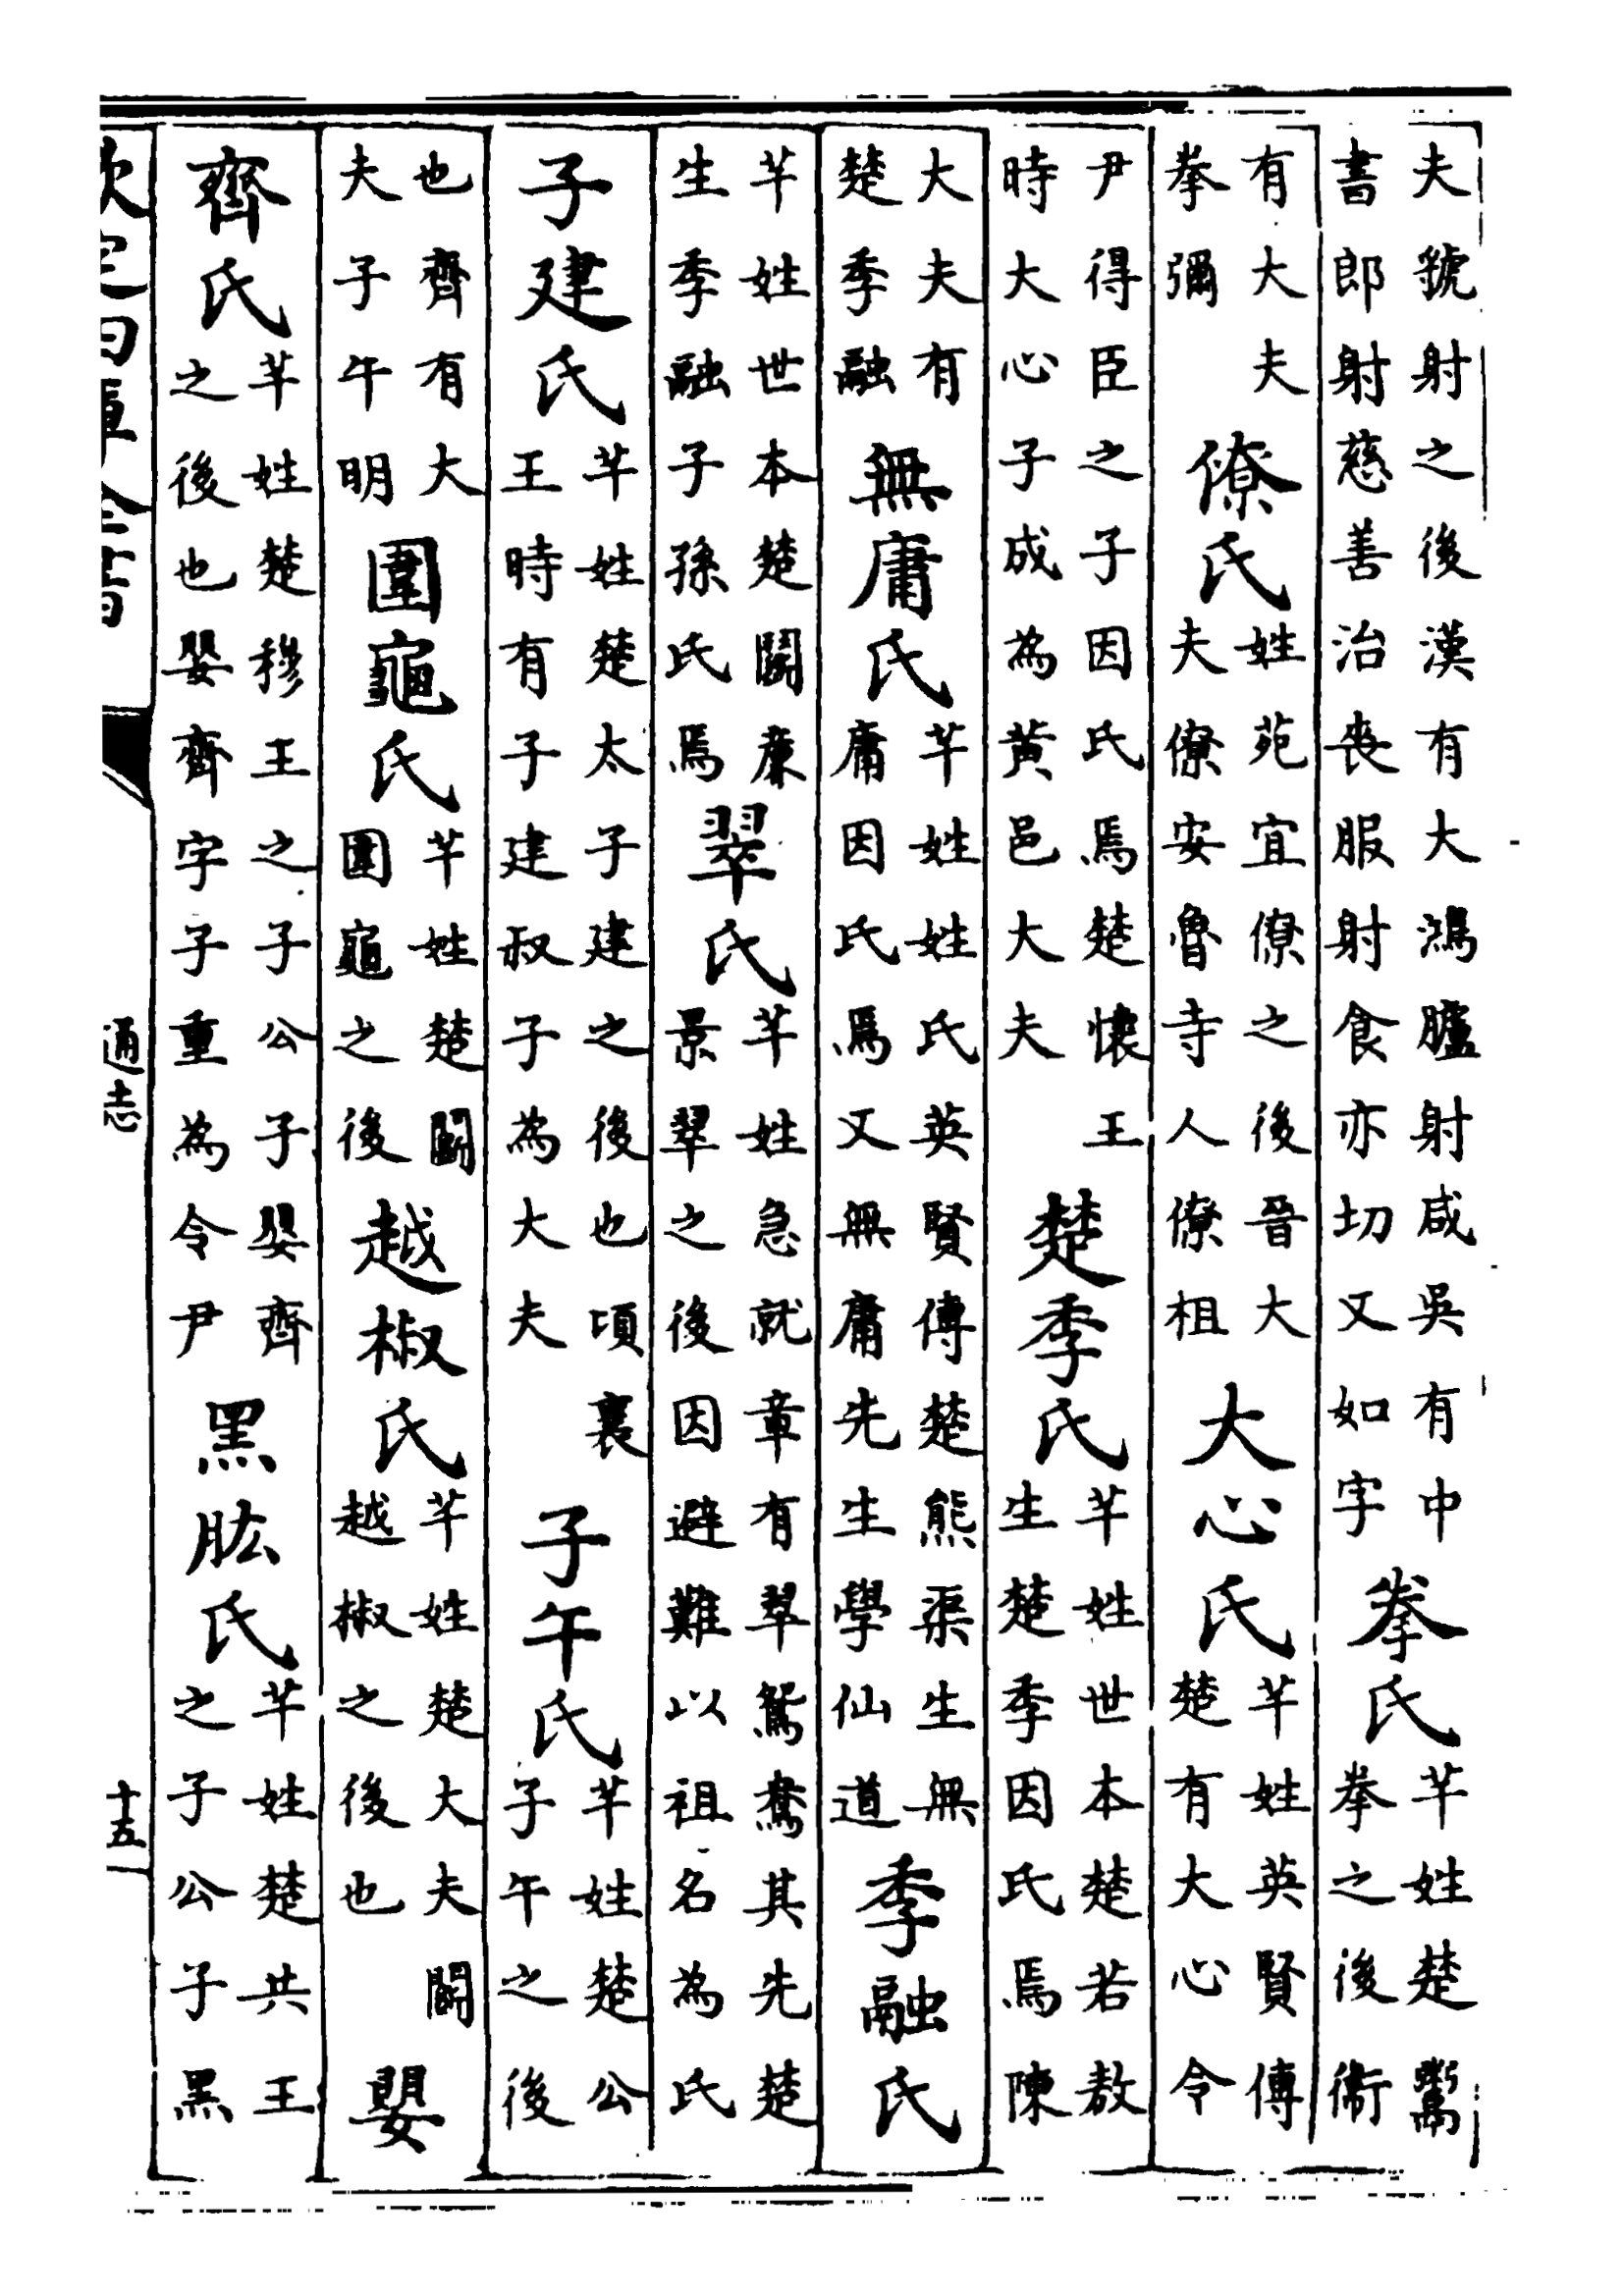 夫虢射之後漢有大鴻臚射咸吳有中書郎射慈善治喪服射食亦切又如字拳氏芉姓楚鬻拳之後衞
有大夫拳彌僚氏姓苑宜僚之後晉大夫僚安魯寺人僚柤大心氏芉姓英賢傳楚有大心令
尹得臣之子因氏焉楚懷王時大心子成為黄邑大夫楚季氏芉姓世本楚若敖生楚季因氏焉陳
大夫有楚季融無庸氏芉姓姓氏英賢傳楚熊渠生無庸因氏焉又無庸先生學仙道季融氏
芉姓世本楚鬭廉生季融子孫氏焉翠氏芉姓急就章有翠鴛鴦其先楚景翠之後因避難以祖名為氏
子建氏芉姓楚太子建之後也頃襄王時有子建叔子為大夫子午氏芉姓楚公子午之後
也齊有大夫子午明圍龜氏芉姓楚鬭圍龜之後越椒氏芉姓楚大夫鬭越椒之後也嬰
齊氏芉姓楚穆王之子公子嬰齊之後也嬰齊字子重為令尹黑肱氏芉姓楚共王之子公子黑
欽定四庫全書
通志
十五